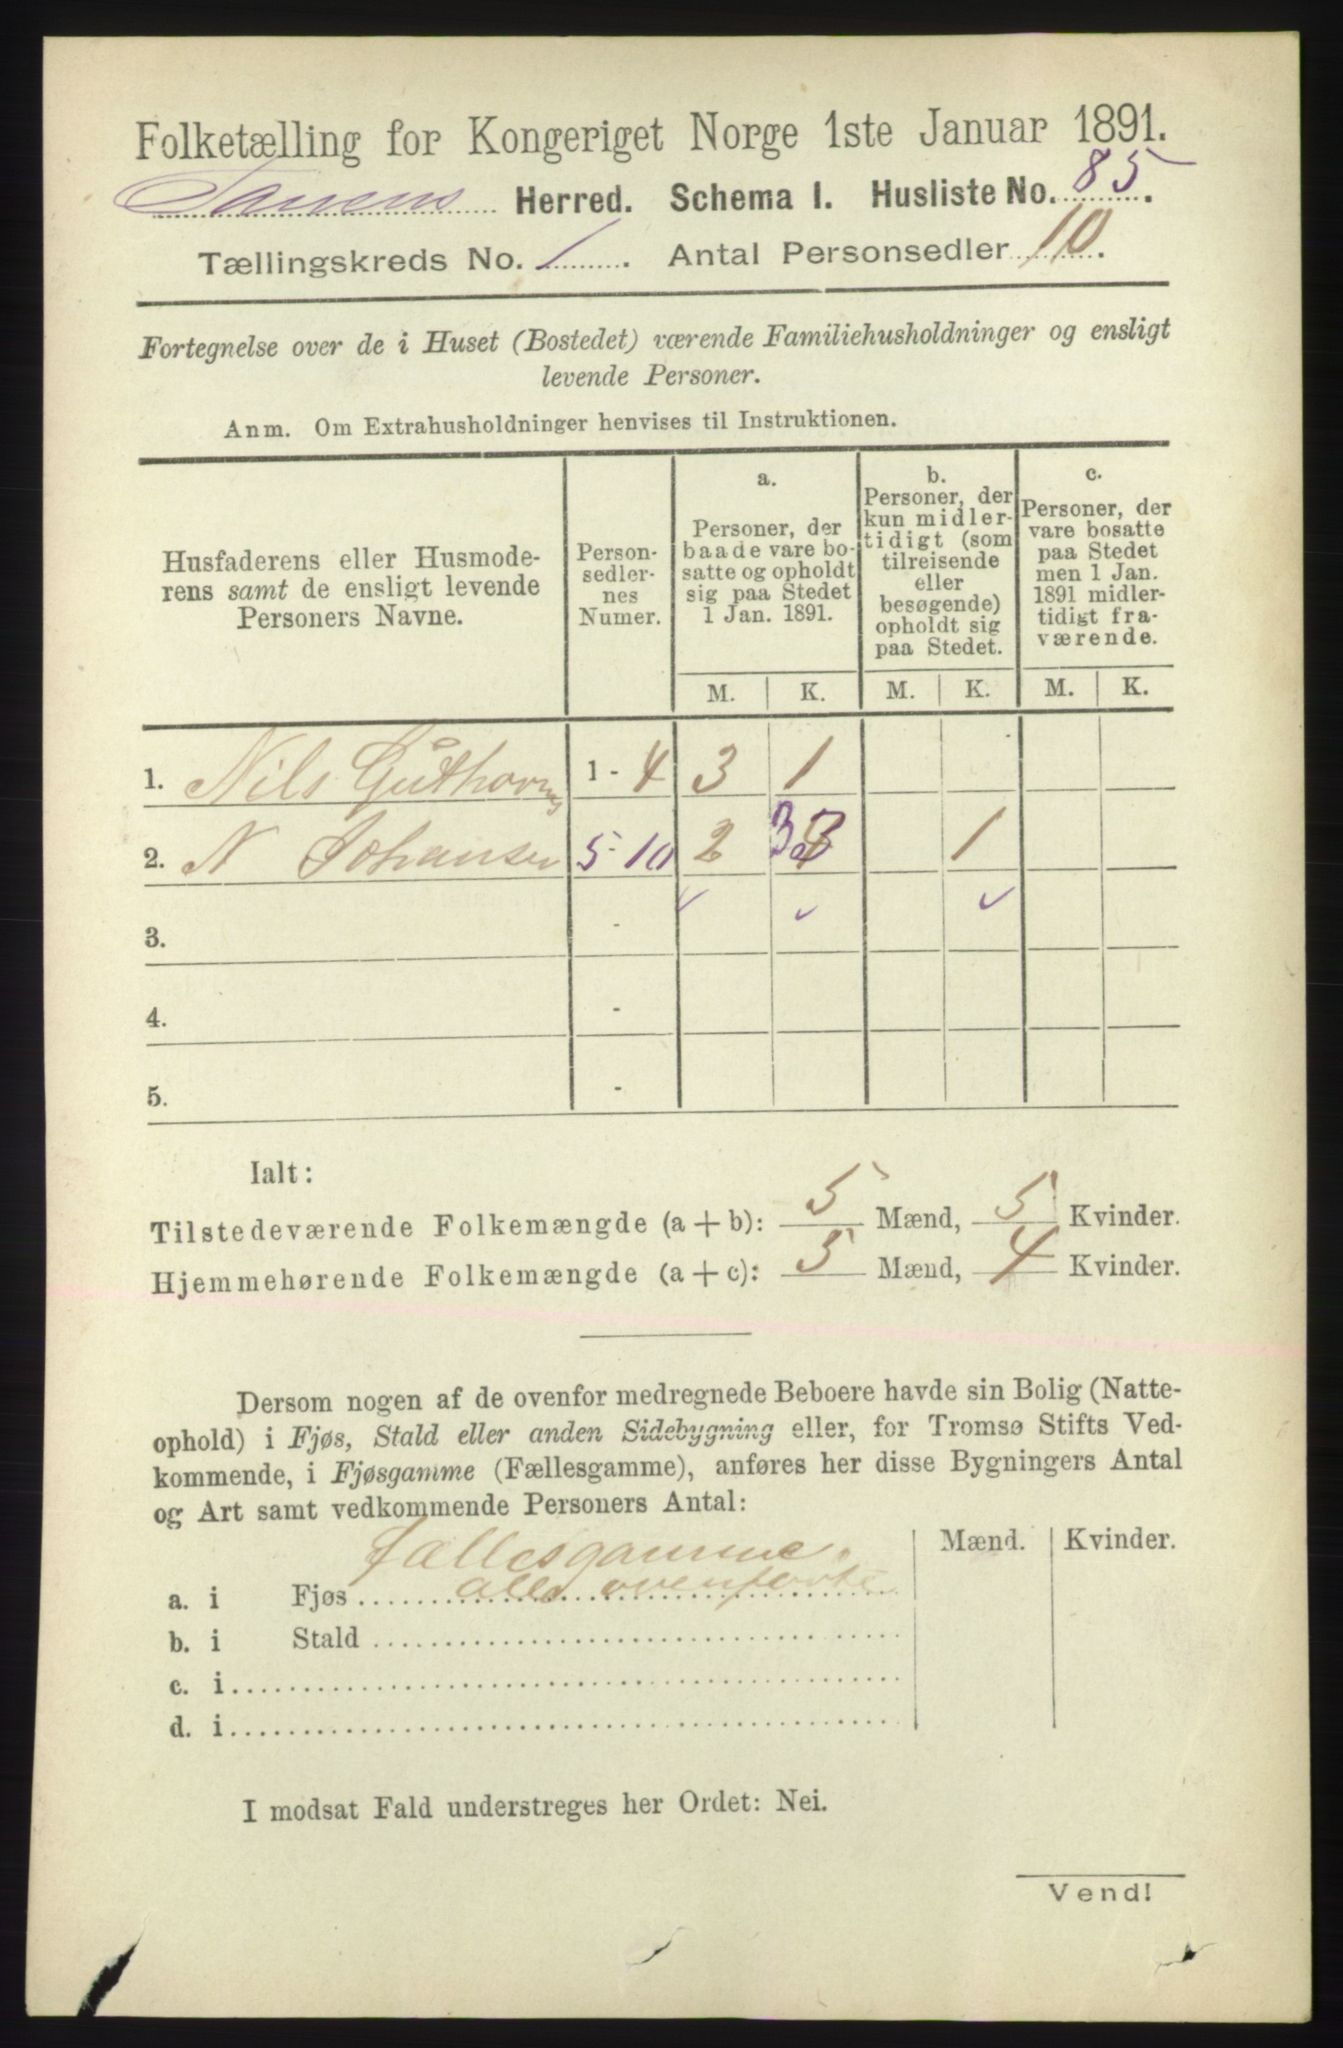 Folketælling for Kongeriget Norge 1ste Januar 1891.
Tanens Herred. Schema I. Husliste No. 85.
Tællingskreds No. 1. Antal Personsedler 10.
Fortegnelse over de i Huset (Bostedet) værende Familiehusholdninger og ensligt
levende Personer.
Anm. Om Extrahusholdninger henvises til Instruktionen.
Husfaderens eller Husmode-
rens samt de ensligt levende
Personers Navne.
Person-
sedler-
nes
Numer.
a.
Personer, der
baade vare bo-
satte og opholdt
sig paa Stedet
1 Jan. 1891.
b.
Personer, der
kun midler-
tidigt (som
tilreisende
eller
besøgende)
opholdt sig
paa Stedet.
c.
Personer, der
vare bosatte
paa Stedet
men 1 Jan.
1891 midler-
tidigt fra-
værende.
M. K. M. K. M. K.
1. Nils Guthorms 1 - 4 3 1
2. N Johansen 5 - 10 2 3 1
3. -
4. -
5. -
Ialt:
Tilstedeværende Folkemængde (a + b): 5 Mænd, 5 Kvinder.
Hjemmehørende Folkemængde (a + c): 5 Mænd, 4 Kvinder.
Dersom nogen af de ovenfor medregnede Beboere havde sin Bolig (Natte-
ophold) i Fjøs, Stald eller anden Sidebygning eller, for Tromsø Stifts Ved-
kommende, i Fjøsgamme (Fællesgamme), anføres her disse Bygningers Antal
og Art samt vedkommende Personers Antal:
Mænd. Kvinder.
Fællesgamme
a. i Fjøs alle ovenførte
b. i Stald
c. i
d. i
I modsat Fald understreges her Ordet: Nei.
Vend!